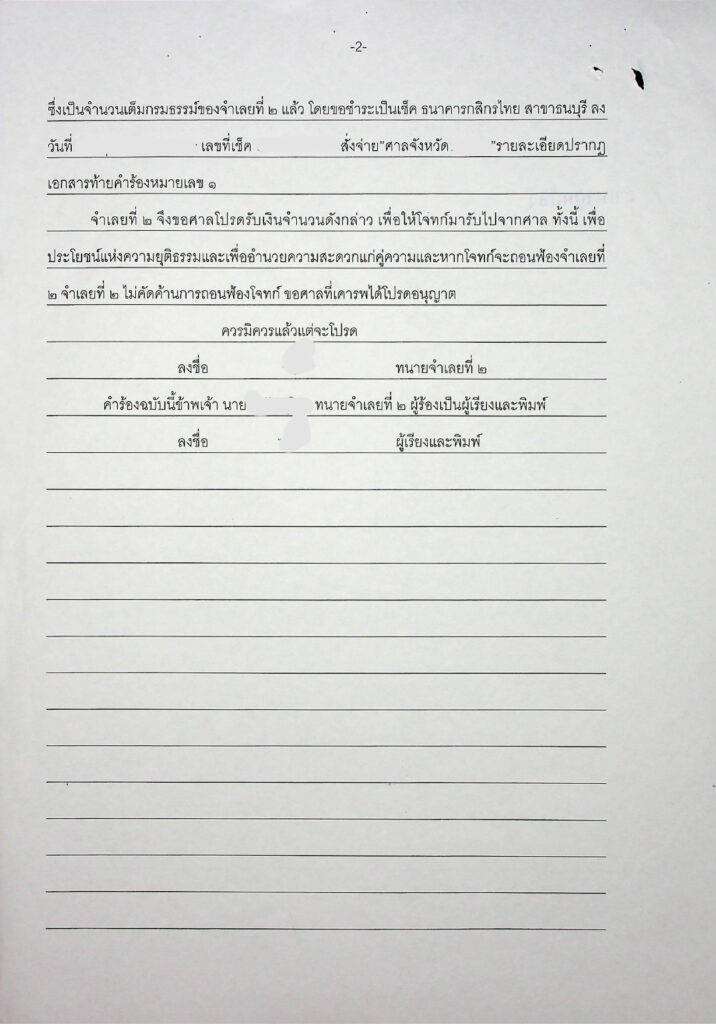 -2-
ซึ่งเป็นจำนวนเต็มกรมธรรม์ของจำเลยที่ ๒ แล้ว โดยขอชำระเป็นเช็ค ธนาคารกสิกรไทย สาขาธนบุรี ลง
วันที่ เลขที่เช็ค สั่งจ่าย"ศาลจังหวัด "รายละเอียดปรากฏ
เอกสารท้ายคำร้องหมายเลข ๑
จำเลยที่ ๒ จึงขอศาลโปรดรับเงินจำนวนดังกล่าว เพื่อให้โจทก์มารับไปจากศาล ทั้งนี้ เพื่อ
ประโยชน์แห่งความยุติธรรมและเพื่ออำนวยความสะดวกแก่คู่ความและหากโจทก์จะถอนฟ้องจำเลยที่
๒ จำเลยที่ ๒ ไม่คัดค้านการถอนฟ้องโจทก์ ขอศาลที่เคารพได้โปรดอนุญาต
ควรมิควรแล้วแต่จะโปรด
ลงชื่อ ทนายจำเลยที่ ๒
คำร้องฉบับนี้ข้าพเจ้า นาย ทนายจำเลยที่ ๒ ผู้ร้องเป็นผู้เรียงและพิมพ์
ลงชื่อ ผู้เรียงและพิมพ์